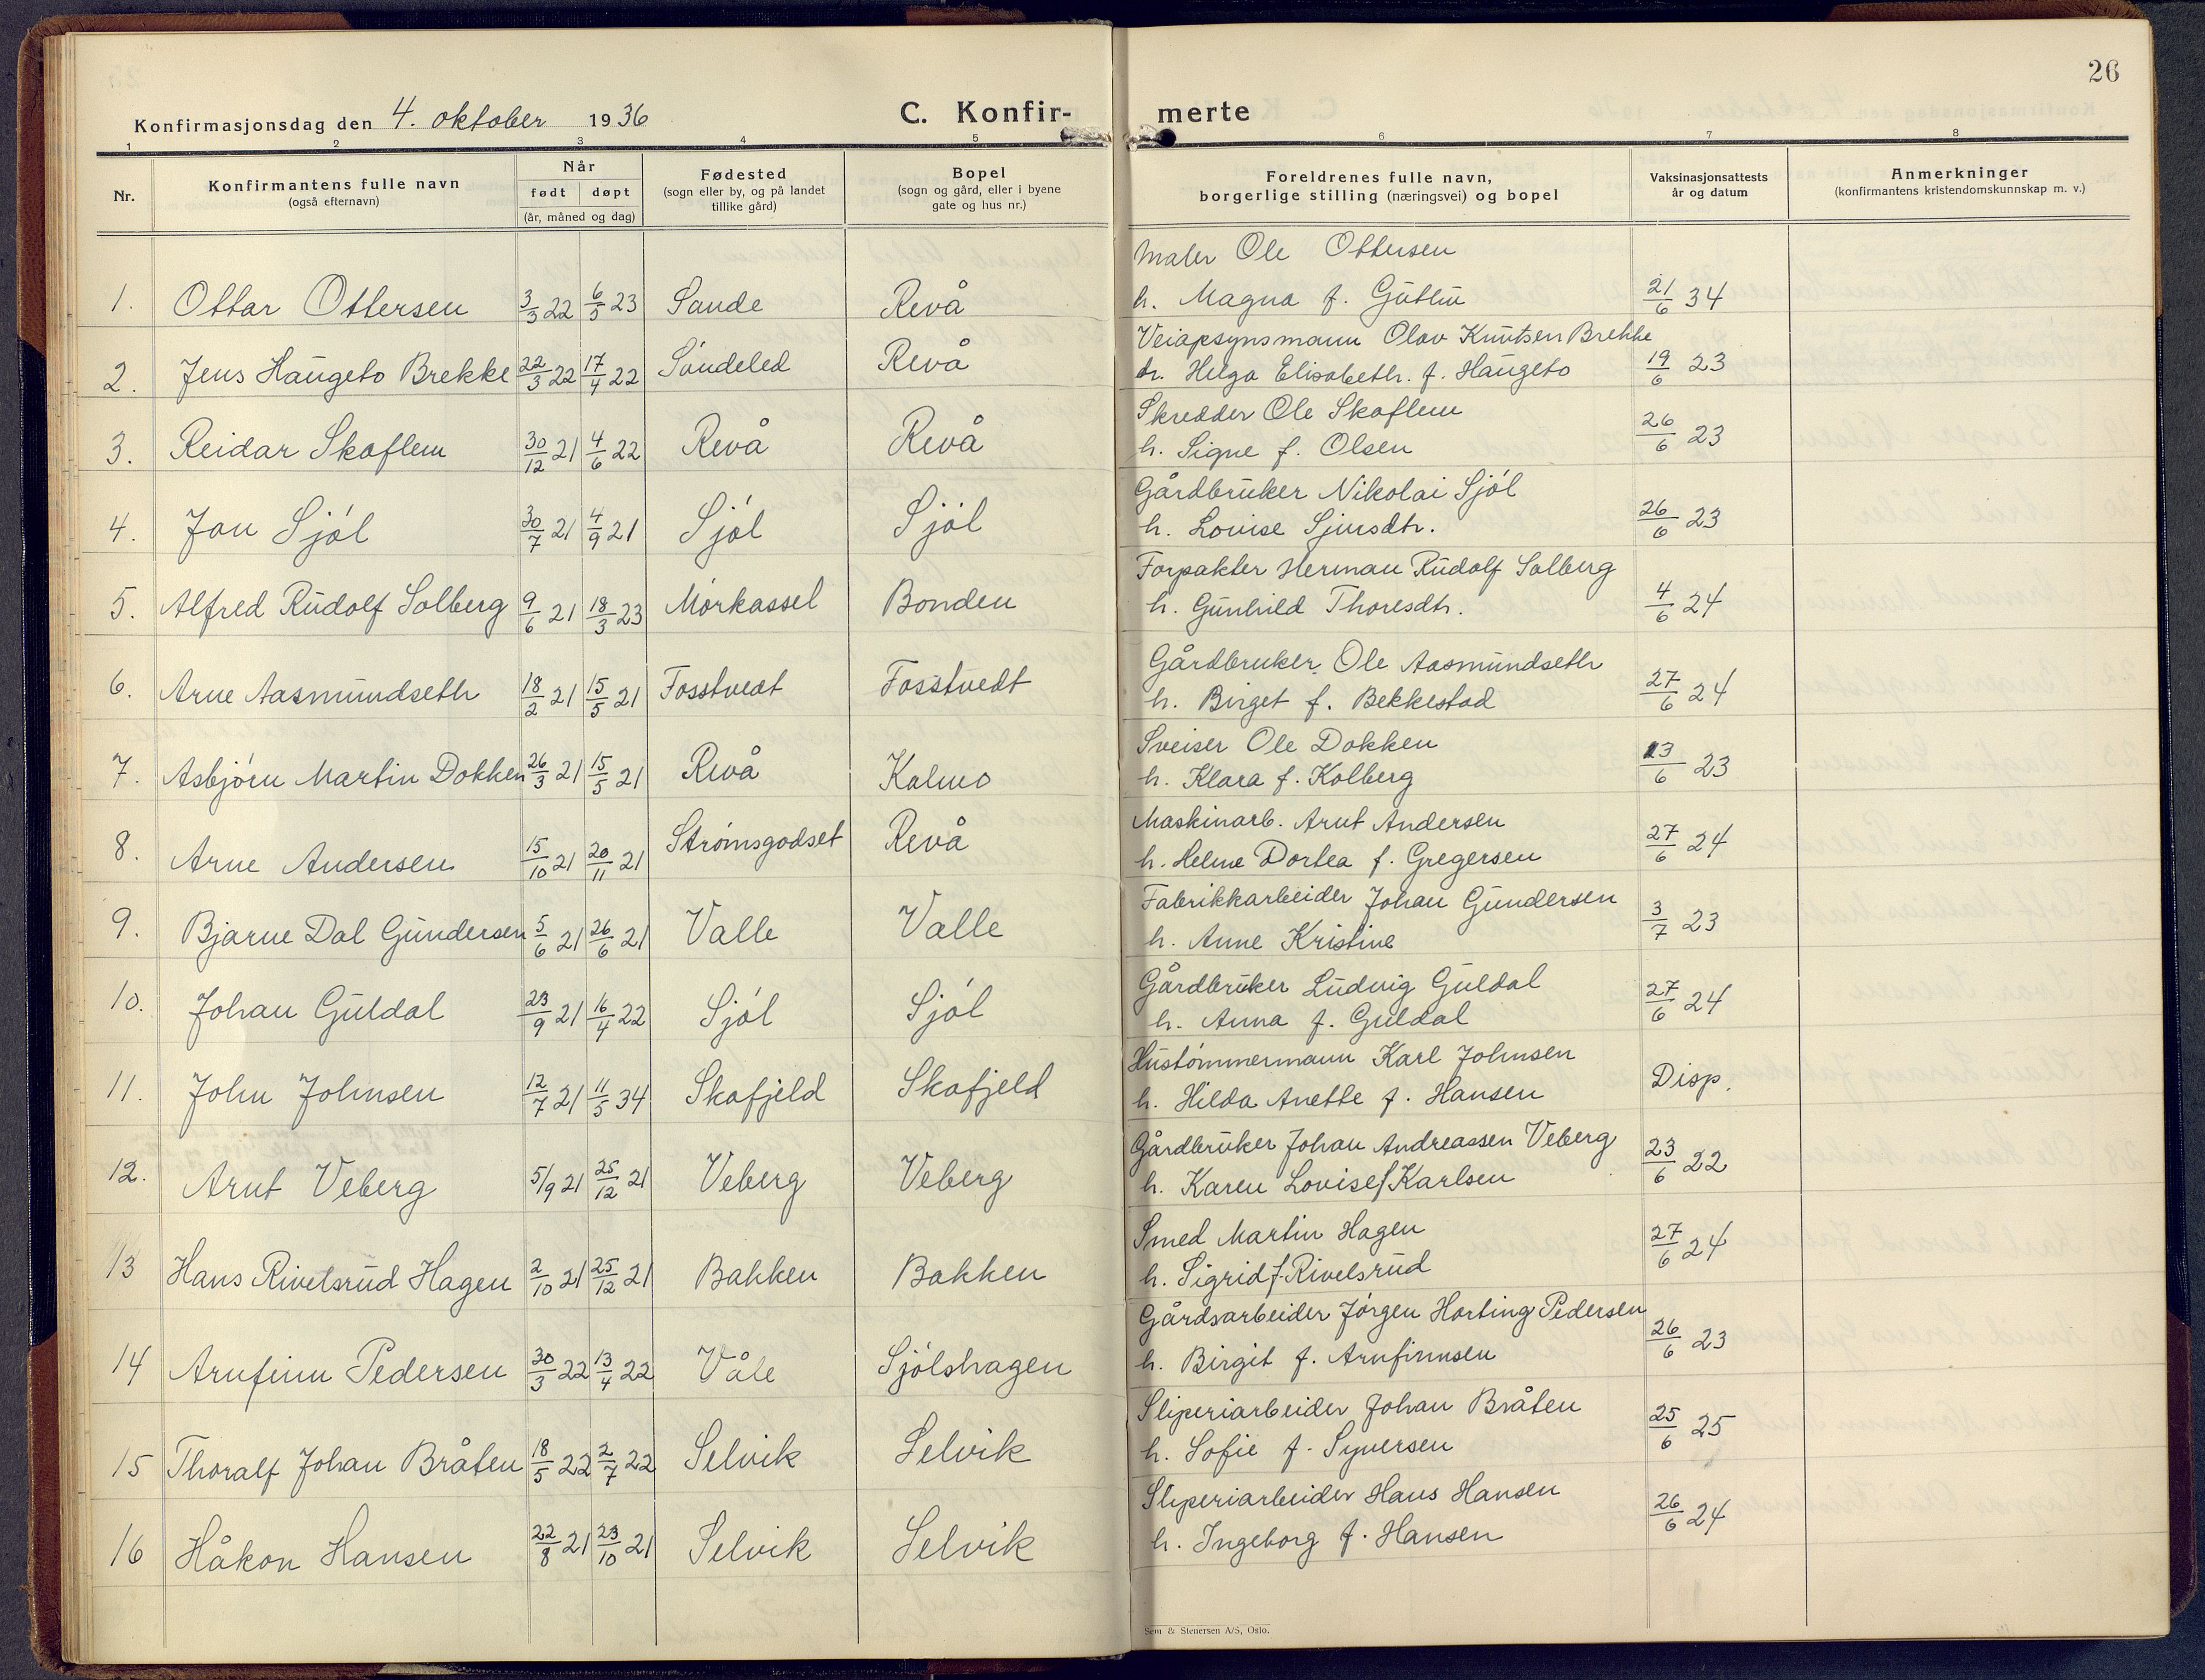 26
Konfirmasjonsdag den 4. oktober 1936
C. Konfirmerte
1 2 3 4 5 6 7 8
Nr.
Konfirmantens fulle navn
(også efternavn)
Når
født døpt
(år, måned og dag)
Fødested
(sogn eller by, og på landet
tillike gård)
Bopel
(sogn og gård, eller i byene
gate og hus nr.)
Foreldrenes fulle navn,
borgerlige stilling (næringsvei) og bopel
Vaksinasjonsattests
år og datum
Anmerkninger
(konfirmantens kristendomskunnskap m. v.)
Maler Ole Ottersen
1. Ottar Ottersen 3/3 22 6/5 23 Sande Revå h. Magna f. Guttu 21/6 34
Veiopsynsmann Olav Knutsen Brekke
2. Jens Haugeto Brekke 22/3 22 17/4 22 Søndeled Revå h. Helga Elisabeth f. Haugeto 19/6 23
Skredder Ole Skaflem
3. Reidar Skaflem 30/12 21 4/6 22 Revå Revå h. Signe f. Olsen 26/6 23
Gårdbruker Nikolai Sjøl
4. Jan Sjøl 30/7 21 4/9 21 Sjøl Sjøl h. Lovise Sjursdtr. 26/6 23
Forpakter Herman Rudolf Solberg
5. Alfred Rudolf Solberg 9/6 21 18/3 23 Mørkassel Bonden h. Gunhild Thoresdtr. 4/6 24
Gårdbruker Ole Aasmundseth
6. Arne Aasmundseth 18/2 21 15/5 21 Fosstvedt Fosstvedt h. Birget f. Bekkestad 27/6 24
Sveiser Ole Dokken
7. Asbjørn Martin Dokken 26/3 21 15/5 21 Revå Kalmo h. Klara f. Kolberg 13/6 23
Maskinarb. Arnt Andersen
8. Arne Andersen 15/10 21 20/11 21 Strømsgodset Revå h. Helme Dortea f. Gregersen 27/6 24
Fabrikkarbeider Johan Gundersen
9. Bjarne Dal Gundersen 5/6 21 26/6 21 Valle Valle h. Anne Kristine 3/7 23
Gårdbruker Ludvig Guldal
10. Johan Guldal 23/9 21 16/4 22 Sjøl Sjøl h. Anna f. Guldal 27/6 24
Hustømmermann Karl Johnsen
11. John Johnsen 12/7 21 11/5 34 Skafjeld Skafjeld h. Hilda Anette f. Hansen Disp.
Gårdbruker Johan Andreassen Veberg
12. Arnt Veberg 5/9 21 25/12 21 Veberg Veberg h. Karen Lovise f Karlsen 23/6 22
Smed Martin Hagen
13 Hans Rivelsrud Hagen 2/10 21 25/12 21 Bakken Bakken h. Sigrid f. Rivelsrud 27/6 24
Gårdsarbeider Jørgen Horting Pedersen
14 Arnfinn Pedersen 30/3 22 13/4 22 Våle Sjølshagen h. Birgit f. Arnfinnsen 26/6 23
Sliperiarbeider Johan Bråten
15 Thoralf Johan Bråten 18/5 22 2/7 22 Selvik Selvik h. Sofie f. Syversen 25/6 25
Sliperiarbeider Hans Hansen
16 Håkon Hansen 22/8 21 23/10 21 Selvik Selvik h. Ingeborg f. Hansen 26/6 24
Sem & Stenersen A/S, Oslo.